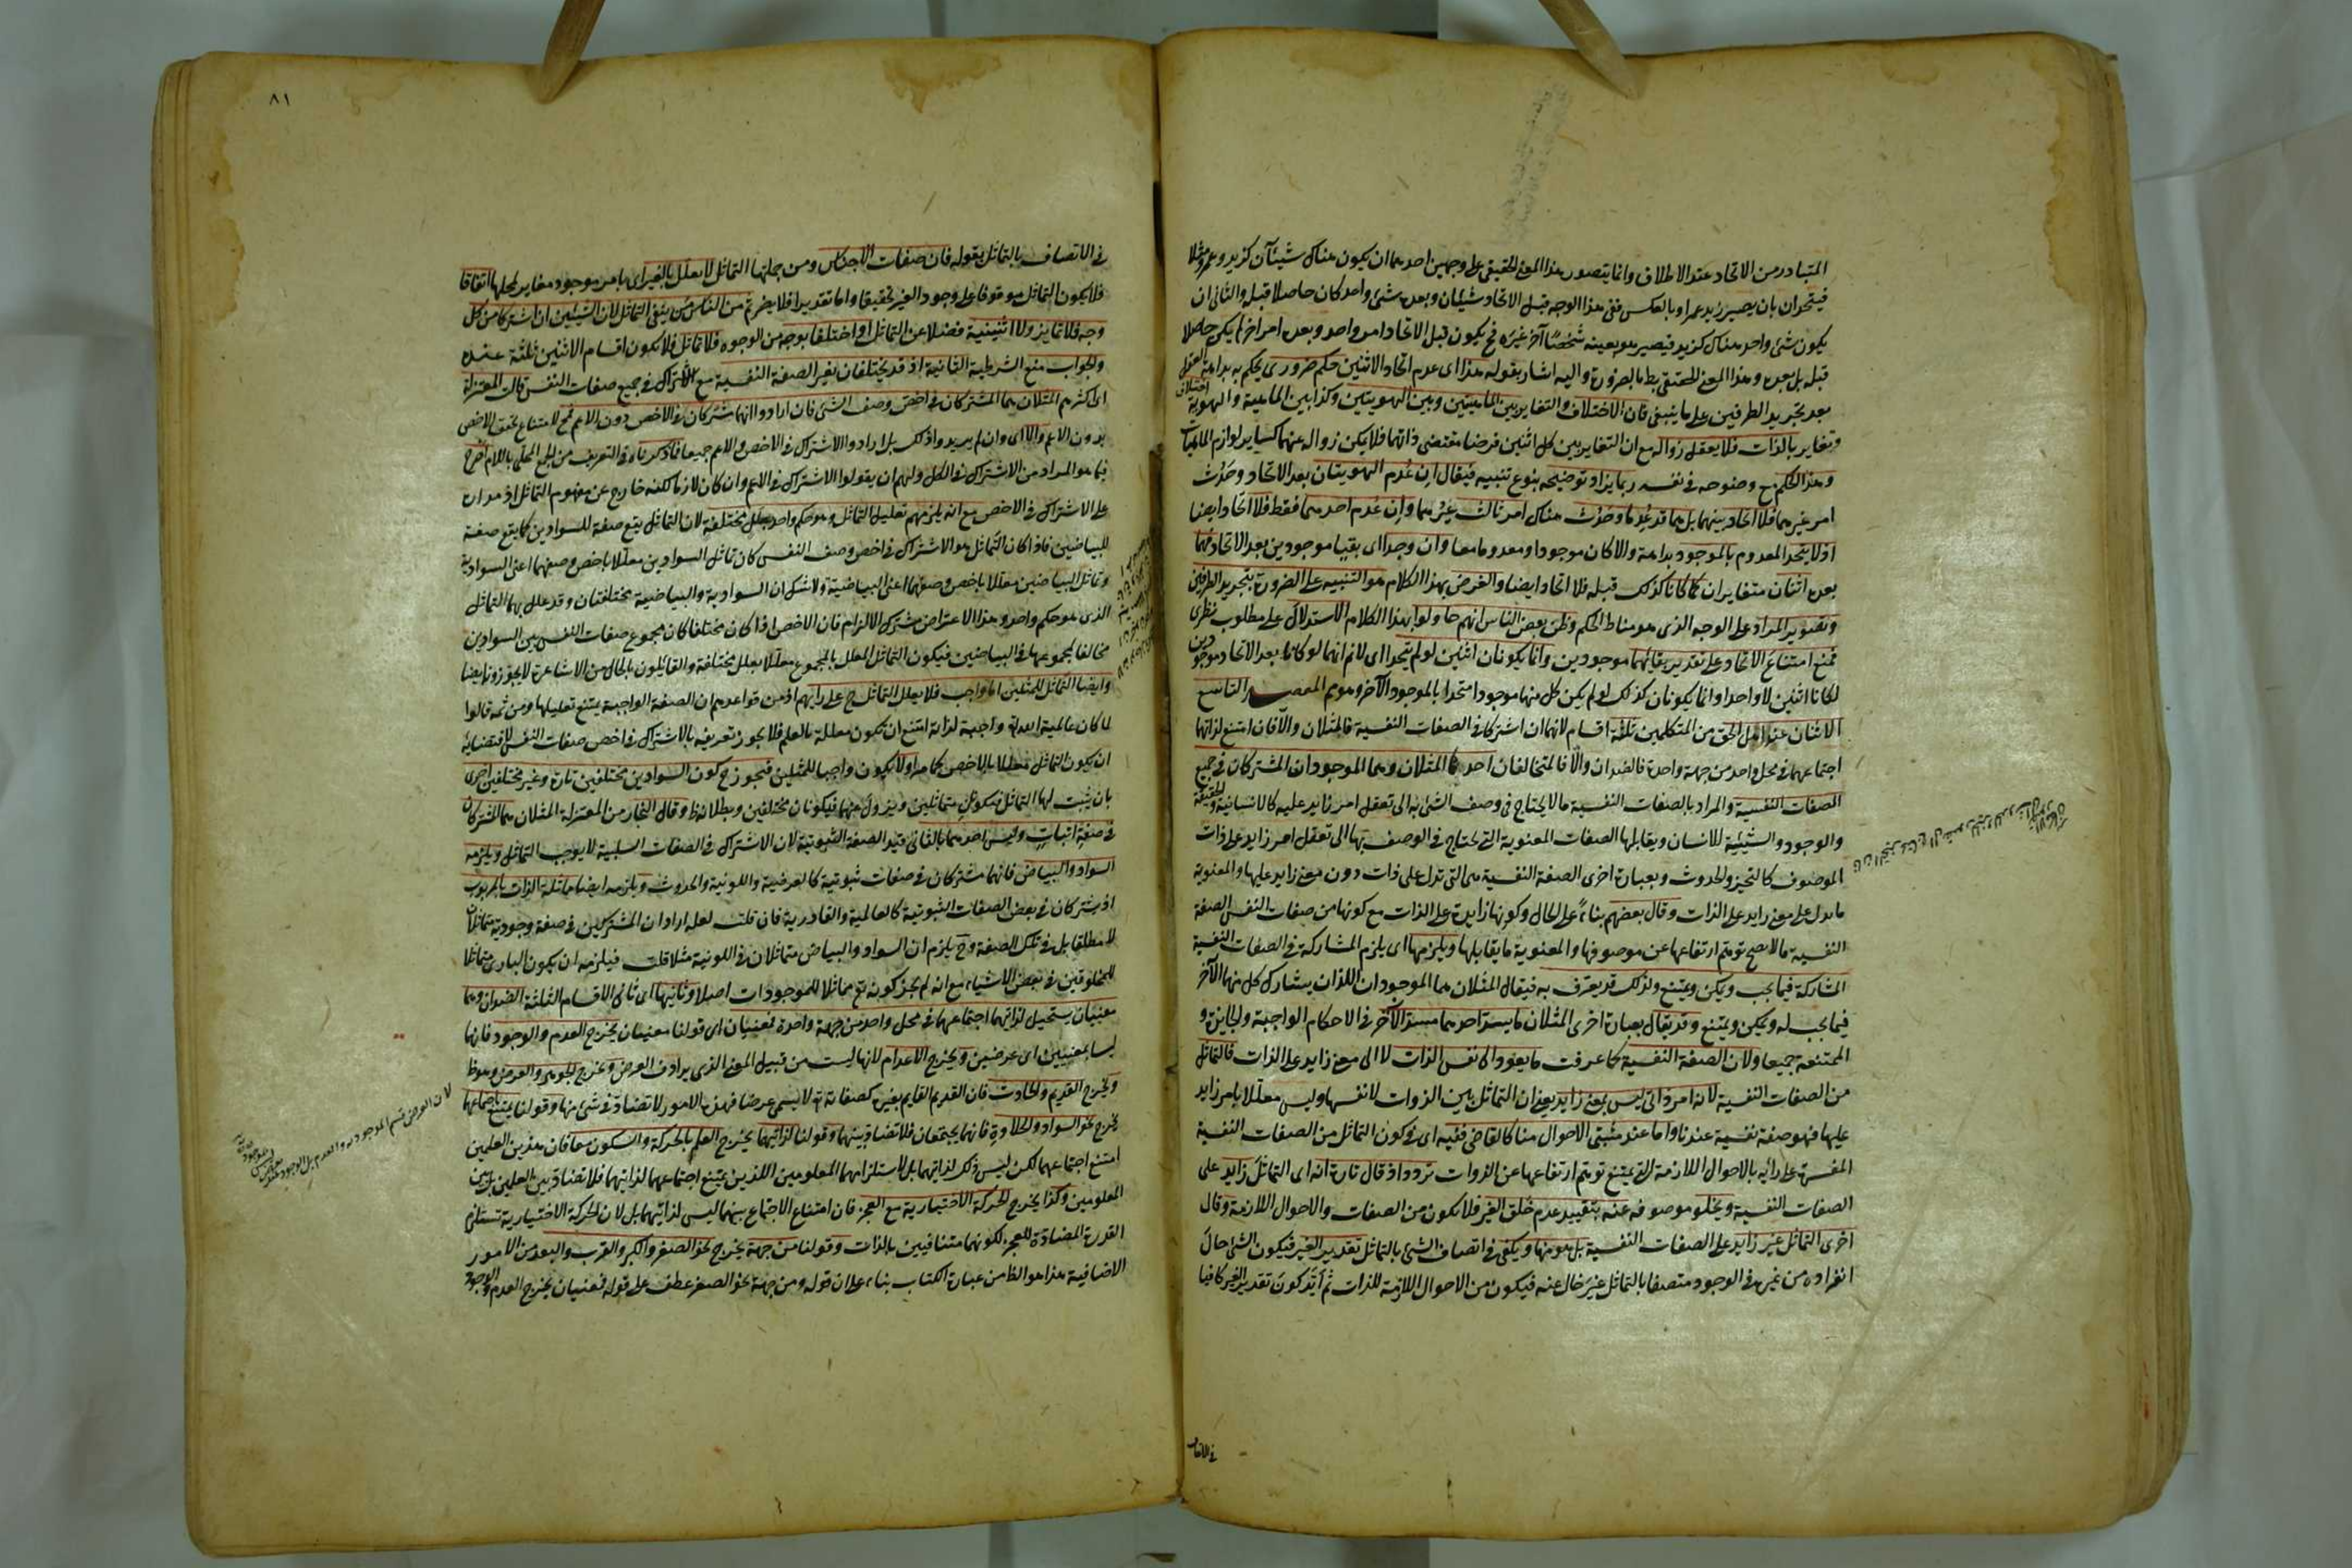 المتبادر من الاتحاد عند الاطلاق وانما يتصور هذا المعنى الحقيقى على وجهين احدهما ان يكون هناك شيئآن كزيد وعمرو مثلا
فيتحدان بان يصير زيد عمرا وبالعكس ففى هذا الوجه قبل الاتحاد شيئان وبعده شئ واحد كان حاصلا قبله والثانى ان
يكون شئ واحد هناك كزيد فيصير هو بعينه شخصًا آخر غيره فح يكون قبل الاتحاد امر واحد وبعده امر اخر لم يكن حاصلا
قبله بل بعده وهذا المعنى الحقيقى بط بالضرورة واليه اشار بقوله هذا اى عدم اتحاد الاثنين حكم ضرورى يحكم به بداهة العقل
بعد تجريد الطرفين على ما ينبغى فان الاختلاف والتغاير بين الماهيتين وبين الهويتين وكذا بين الماهية والهوية اختلاف
وتغاير بالذات فلا يعقل زواله مع ان التغاير بين كل اثنين فرضا مقتضى ذاتهما فلا يمكن زواله عنهما كساير لوازم الماهيات
وهذا الحكم مع وضوحه فى نفسه ربما يزاد توضيحه بنوع تنبيه فيقال ان عُدم الهويتان بعد الاتحاد وحَدث
امر غيرهما فلا اتحاد بينهما بل هما قد عُدما وحَدث هناك امر ثالث غيرُهما وان عُدم احدهما فقط فلا اتحاد ايضا
اذ لا يتحد المعدوم بالموجود بداهة والا كان موجودا ومعدوما معا وان وجدا اى بقيا موجودين بعد الاتحاد فهما
بعده اثنان متغايران كما كانا كذلك قبله فلا اتحاد ايضا والغرض بهذا الكلام هو التنبيه على الضرورة بتجريد الطرفين
وتصوير المراد على الوجه الذى هو مناط الحكم وظن بعض الناس انهم حاولوا بهذا الكلام الاستدلال على مطلوب نظرى
فمنع امتناع الاتحاد على تقدير بقائهما موجودين وانما يكونان اثنين لو لم يتحدا اى لانم انهما لو كانا بعد الاتحاد موجودين
لكانا اثنين لا واحدا وانما يكونان كذلك لو لم يكن كل منهما موجودا متحدا بالموجود الآخر وهو مم المقصد التاسع
الاثنان عند اهل الحق من المتكلمين ثلثة اقسام لانهما ان اشتركا فى الصفات النفسية فالمثلان والا فان امتنع لذاتهما
اجتماعهما فى محل واحد من جهة واحدة فالضدان والا فالمتخالفان احدها المثلان وهما الموجودان المشتركان فى جميع
الصفات النفسية والمراد بالصفات النفسية ما لا يحتاج فى وصف الشئ به الى تعقل امر زايد عليه كالانسانية والحقيقة
والوجود والشيئية للانسان ويقابلها الصفات المعنوية التى يحتاج فى الوصف بها الى تعقل امر زايد على ذات
الموصوف كالتحيز والحدوث وبعبارة اخرى الصفة النفسية هى التى تدل على ذات دون معنى زايد عليها والمعنوية
ما يدل على معنى زايد على الذات وقال بعضهم بناءً على الحال وكونها زايدة على الذات مع كونها من صفات النفس الصفة
النفسية ما لا يصح توهم ارتفاعها عن موصوفها والمعنوية ما يقابلها ويلزمها اى يلزم المشاركة فى الصفات النفسية
المشاركة فيما يجب ويمكن ويمتنع ولذلك قد يعرف به فيقال المثلان هما الموجودان اللذان يشارك كل منهما الآخر
فيما يجب له ويمكن ويمتنع وقد يقال بعبارة اخرى المثلان ما يسد احدهما مسد الآخر فى الاحكام الواجبة والجايزة و
الممتنعة جميعا ولان الصفة النفسية كما عرفت ما يعود الى نفس الذات لا الى معنى زايد على الذات فالتماثل
من الصفات النفسية لانه امر ذاتى ليس بمعنى زايد يعنى ان التماثل بين الذوات لانفسها وليس معللا بامر زايد
عليها فهو صفة نفسية عندنا واما عند مثبتى الاحوال منا كالقاضى ففيه اى فى كون التماثل من الصفات النفسية
المفسرة على رأيه بالاحوال اللازمة التى يمتنع توهم ارتفاعها عن الذوات تردد اذ قال تارة انه اى التماثل زايد على
الصفات النفسية ويخلو موصوفه عنه بتقييد عدم خلق الغير فلا يكون من الصفات والاحوال اللازمة وقال
اخرى التماثل غير زايد على الصفات النفسية بل هو منها ويكفى فى اتصاف الشئ بالتماثل تقدير الغير فيكون الشئ حال
انفراده من غيره فى الوجود متصفا بالتماثل غير خال عنه فيكون من الاحوال اللازمة للذات ثم ايّد كون تقدير الغير كافيا
فى الاتصاف
٨١
فى الاتصاف بالتماثل بقوله فان صفات الاجناس ومن جملتها التماثل لا يعلل بالغير اى بامر موجود مغاير لمحلها اتفاقا
فلا يكون التماثل موقوفا على وجود الغير تحقيقا واما تقديرا فلا يضر ثم من الناس من ينفى التماثل لان الشيئين ان اشتركا من كل
وجه فلا تمايز ولا اثنينية فضلا عن التماثل او اختلفا بوجه من الوجوه فلا تماثل فلا يكون اقسام الاثنين ثلثة عنده
والجواب منع الشرطية الثانية اذ قد يختلفان بغير الصفة النفسية مع الاشتراك فى جميع صفات النفس قالت المعتزلة
اى اكثرهم المثلان هما المشتركان فى اخص وصف الشئ فان ارادوا انهما مشتركان فى الاخص دون الاعم فمح لامتناع تحقق الاخص
بدون الاعم والا اى وان لم يريدوا ذلك بل ارادوا الاشتراك فى الاخص والاعم جميعا فما ذكرناه فى التعريف من الجمع المحلى باللام اصرح
فيما هو المراد من الاشتراك فى الكل ولهم ان يقولوا الاشتراك فى الاعم وان كان لازما لكنه خارج عن مفهوم التماثل اذ مداره
على الاشتراك فى الاخص مع انه يلزمهم تعليل التماثل وهو حكم واحد بعلل مختلفة لان التماثل يقع صفة للسوادين كما يقع صفة
للبياضين فاذا كان التماثل هو الاشتراك فى اخص وصف النفس كان تماثل السوادين معللا باخص وصفهما اعنى السوادية
وتماثل البياضين معللا باخص وصفهما اعنى البياضية ولا شك ان السوادية والبياضية مختلفتان وقد علل بهما التماثل
الذى هو حكم واحد وهذا الاعتراض مشترك الالزام فان الاخص اذا كان مختلفا كان مجموع صفات النفس بين السوادين
مخالفا لمجموعها فى البياضين فيكون التماثل المعلل بالمجموع معللا بعلل مختلفة والقائلون بالحال من الاشاعرة لا يجوزونه ايضا
وايضا التماثل للمثلين اما واجب فلا يعلل التماثل ح على رأيهم اذ من قواعدهم ان الصفة الواجبة يمتنع تعليلها ومن ثمه قالوا
لما كان عالمية الله واجبة لذاته امتنع ان تكون معللة بالعلم فلا يجوز تعريفه بالاشتراك فى اخص صفات النفس لاقتضايه
ان يكون التماثل معللا بالاخص كما مر او لا يكون واجبا للمثلين فيجوز ح كون السوادين مختلفين تارة وغير مختلفين اخرى
بان يثبت لهما التماثل فيكونان متماثلين ويزول عنهما فيكونان مختلفين وبطلانه ظ وقال النجار من المعتزلة المثلان هما المشتركان
فى صفة اثبات وليس احدهما بالثانى قيد الصفة الثبوتية لان الاشتراك فى الصفات السلبية لا يوجب التماثل ويلزمه
السواد والبياض فانهما مشتركان فى صفات ثبوتية كالعرضية واللونية والحدوث ويلزمه ايضا مماثلة الرب بالمربوب
اذ يشتركان فى بعض الصفات الثبوتية كالعالمية والقادرية فان قلت لعله اراد ان المشتركين فى صفة وجودية متماثلان
لا مطلقا بل فى تلك الصفة وح يلزم ان السواد والبياض متماثلان فى اللونية مثلا قلت فيلزمه ان يكون البارى مماثلا
للمخلوقين فى بعض الاشياء مع انه لم يجز كونه تع مماثلا للموجودات اصلا وثانيها اى ثانى الاقسام الثلثة الضدان وهما
معنيان يستحيل لذاتيهما اجتماعهما فى محل واحد من جهة واحدة فمعنيان اى قولنا معنيان يخرج العدم والوجود فانهما
ليسا بمعنيين اى عرضين ويخرج الاعدام لانها ليست من قبيل المعنى الذى يرادف العرض ويخرج الجوهر والعرض وهو ظ
ويخرج القديم والحادث فان القديم القايم بغيره كصفاته تع لا يسمى عرضا فهذه الامور لا تضاد فى شئ منها وقولنا يمتنع اجتماعهما
يخرج نحو السواد والحلاوة فانهما يجتمعان فلا تضاد بينهما وقولنا لذاتيهما يخرج العلم بالحركة والسكون معا فان هذين العلمين
امتنع اجتماعهما لكن ليس ذلك لذاتيهما بل لاستلزامهما المعلومين اللذين يمتنع اجتماعهما لذاتيهما فلا تضاد بين العلمين بل بين
المعلومين وكذا يخرج الحركة الاختيارية مع العجز فان امتناع الاجتماع بينهما ليس لذاتيهما بل لان الحركة الاختيارية تستلزم
القدرة المضادة للعجز لكونهما متنافيين بالذات وقولنا من جهة يخرج نحو الصغر والكبر والقرب والبعد من الامور
الاضافية هذا هو الظ من عبارة الكتاب بناء على ان قوله ومن جهة نحو الصغر عطف على قوله فمعنيان يخرج العدم والوجود
لان العرض قسم الموجود والعدم بل الوجود